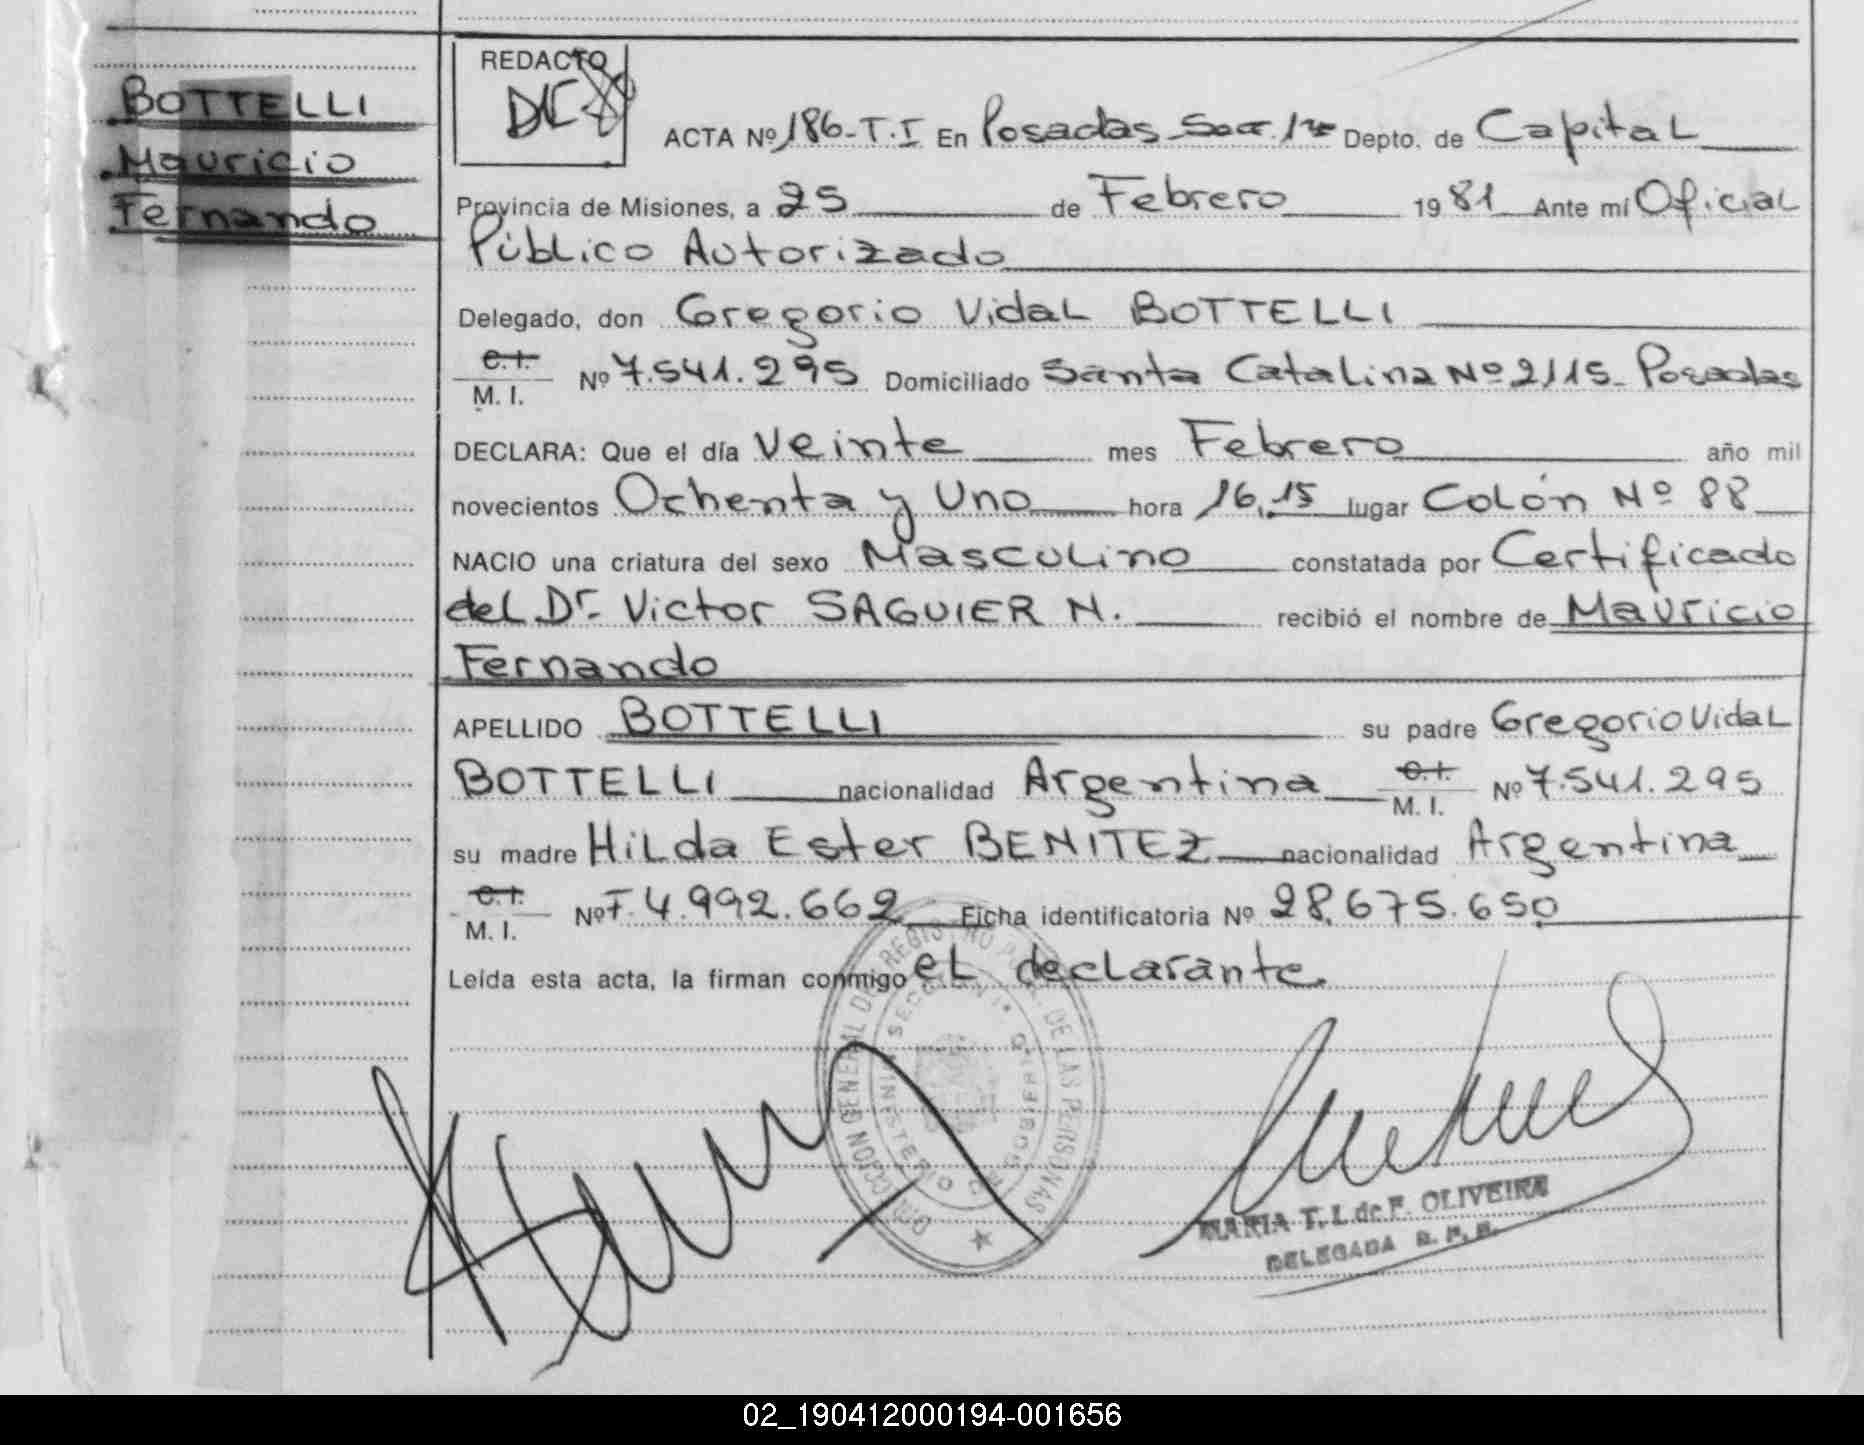 BOTTELLI
Mauricio
Fernando
REDACTO
ACTA Nº 186-T.I En Posadas Secc. 1ra Depto. de Capital
Provincia de Misiones, a 25 de Febrero 1981 Ante mí Oficial
Público Autorizado
Delegado, don Gregorio Vidal BOTTELLI
C.I.
M. I. Nº 7.541.295 Domiciliado Santa Catalina Nº 2115 Posadas
DECLARA: Que el día Veinte mes Febrero año mil
novecientos Ochenta y Uno hora 16,15 lugar Colón Nº 88
NACIO una criatura del sexo Masculino constatada por Certificado
del Dr. Victor SAGUIER N. recibió el nombre de Mauricio
Fernando
APELLIDO BOTTELLI su padre Gregorio Vidal
BOTTELLI nacionalidad Argentina C.I. M. I. Nº 7.541.295
su madre Hilda Ester BENITEZ nacionalidad Argentina
C.I.
M. I. Nº F. 4.992.662 Ficha identificatoria Nº 28.675.650
Leída esta acta, la firman conmigo el declarante.
DIRECCION GENERAL DEL REGISTRO DE LAS PERSONAS
MINISTERIO DE GOBIERNO
SECCION 1ª
MARIA T. I. de F. OLIVEIRA
DELEGADA R. P. P.
02_190412000194-001656